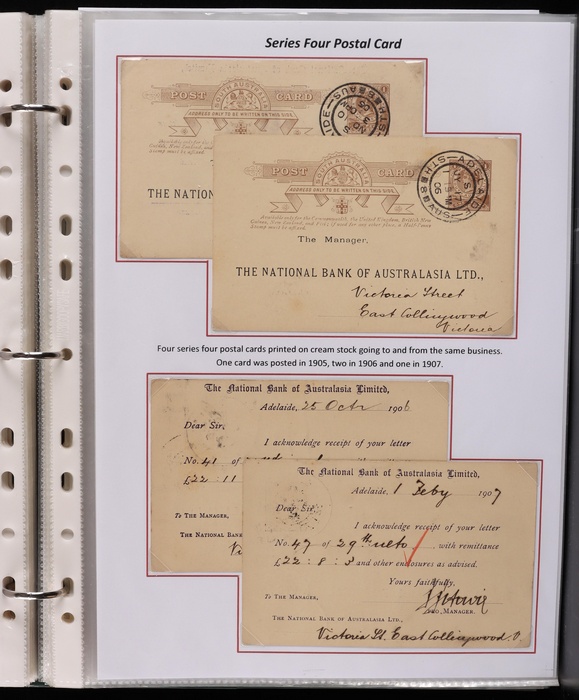 Series Four Postal Card
SOUTH AUSTRALIA
POST CARD
ADDRESS ONLY TO BE WRITTEN ON THIS SIDE.
THE NATION
SOUTH AUSTRALIA
POST CARD
ADDRESS ONLY TO BE WRITTEN ON THIS SIDE.
ADELAIDE
06
The Manager,
THE NATIONAL BANK OF AUSTRALASIA LTD.,
Victoria Street
East Collingwood
Victoria
Four series four postal cards printed on cream stock going to and from the same business.
One card was posted in 1905, two in 1906 and one in 1907.
The National Bank of Australasia Limited,
Adelaide, 25 Octr 1906
Dear Sir,
I acknowledge receipt of your letter
No. 41 of
£22 : 11
To THE MANAGER,
THE NATIONAL BANK
The National Bank of Australasia Limited,
Adelaide, 1 Feby 1907
Dear Sir,
I acknowledge receipt of your letter
No. 47 of 29th ulto, with remittance
£22 : 8 : 3 and other enclosures as advised.
Yours faithfully,
To THE MANAGER,
MANAGER.
THE NATIONAL BANK OF AUSTRALASIA LTD.,
Victoria St. East Collingwood. V.